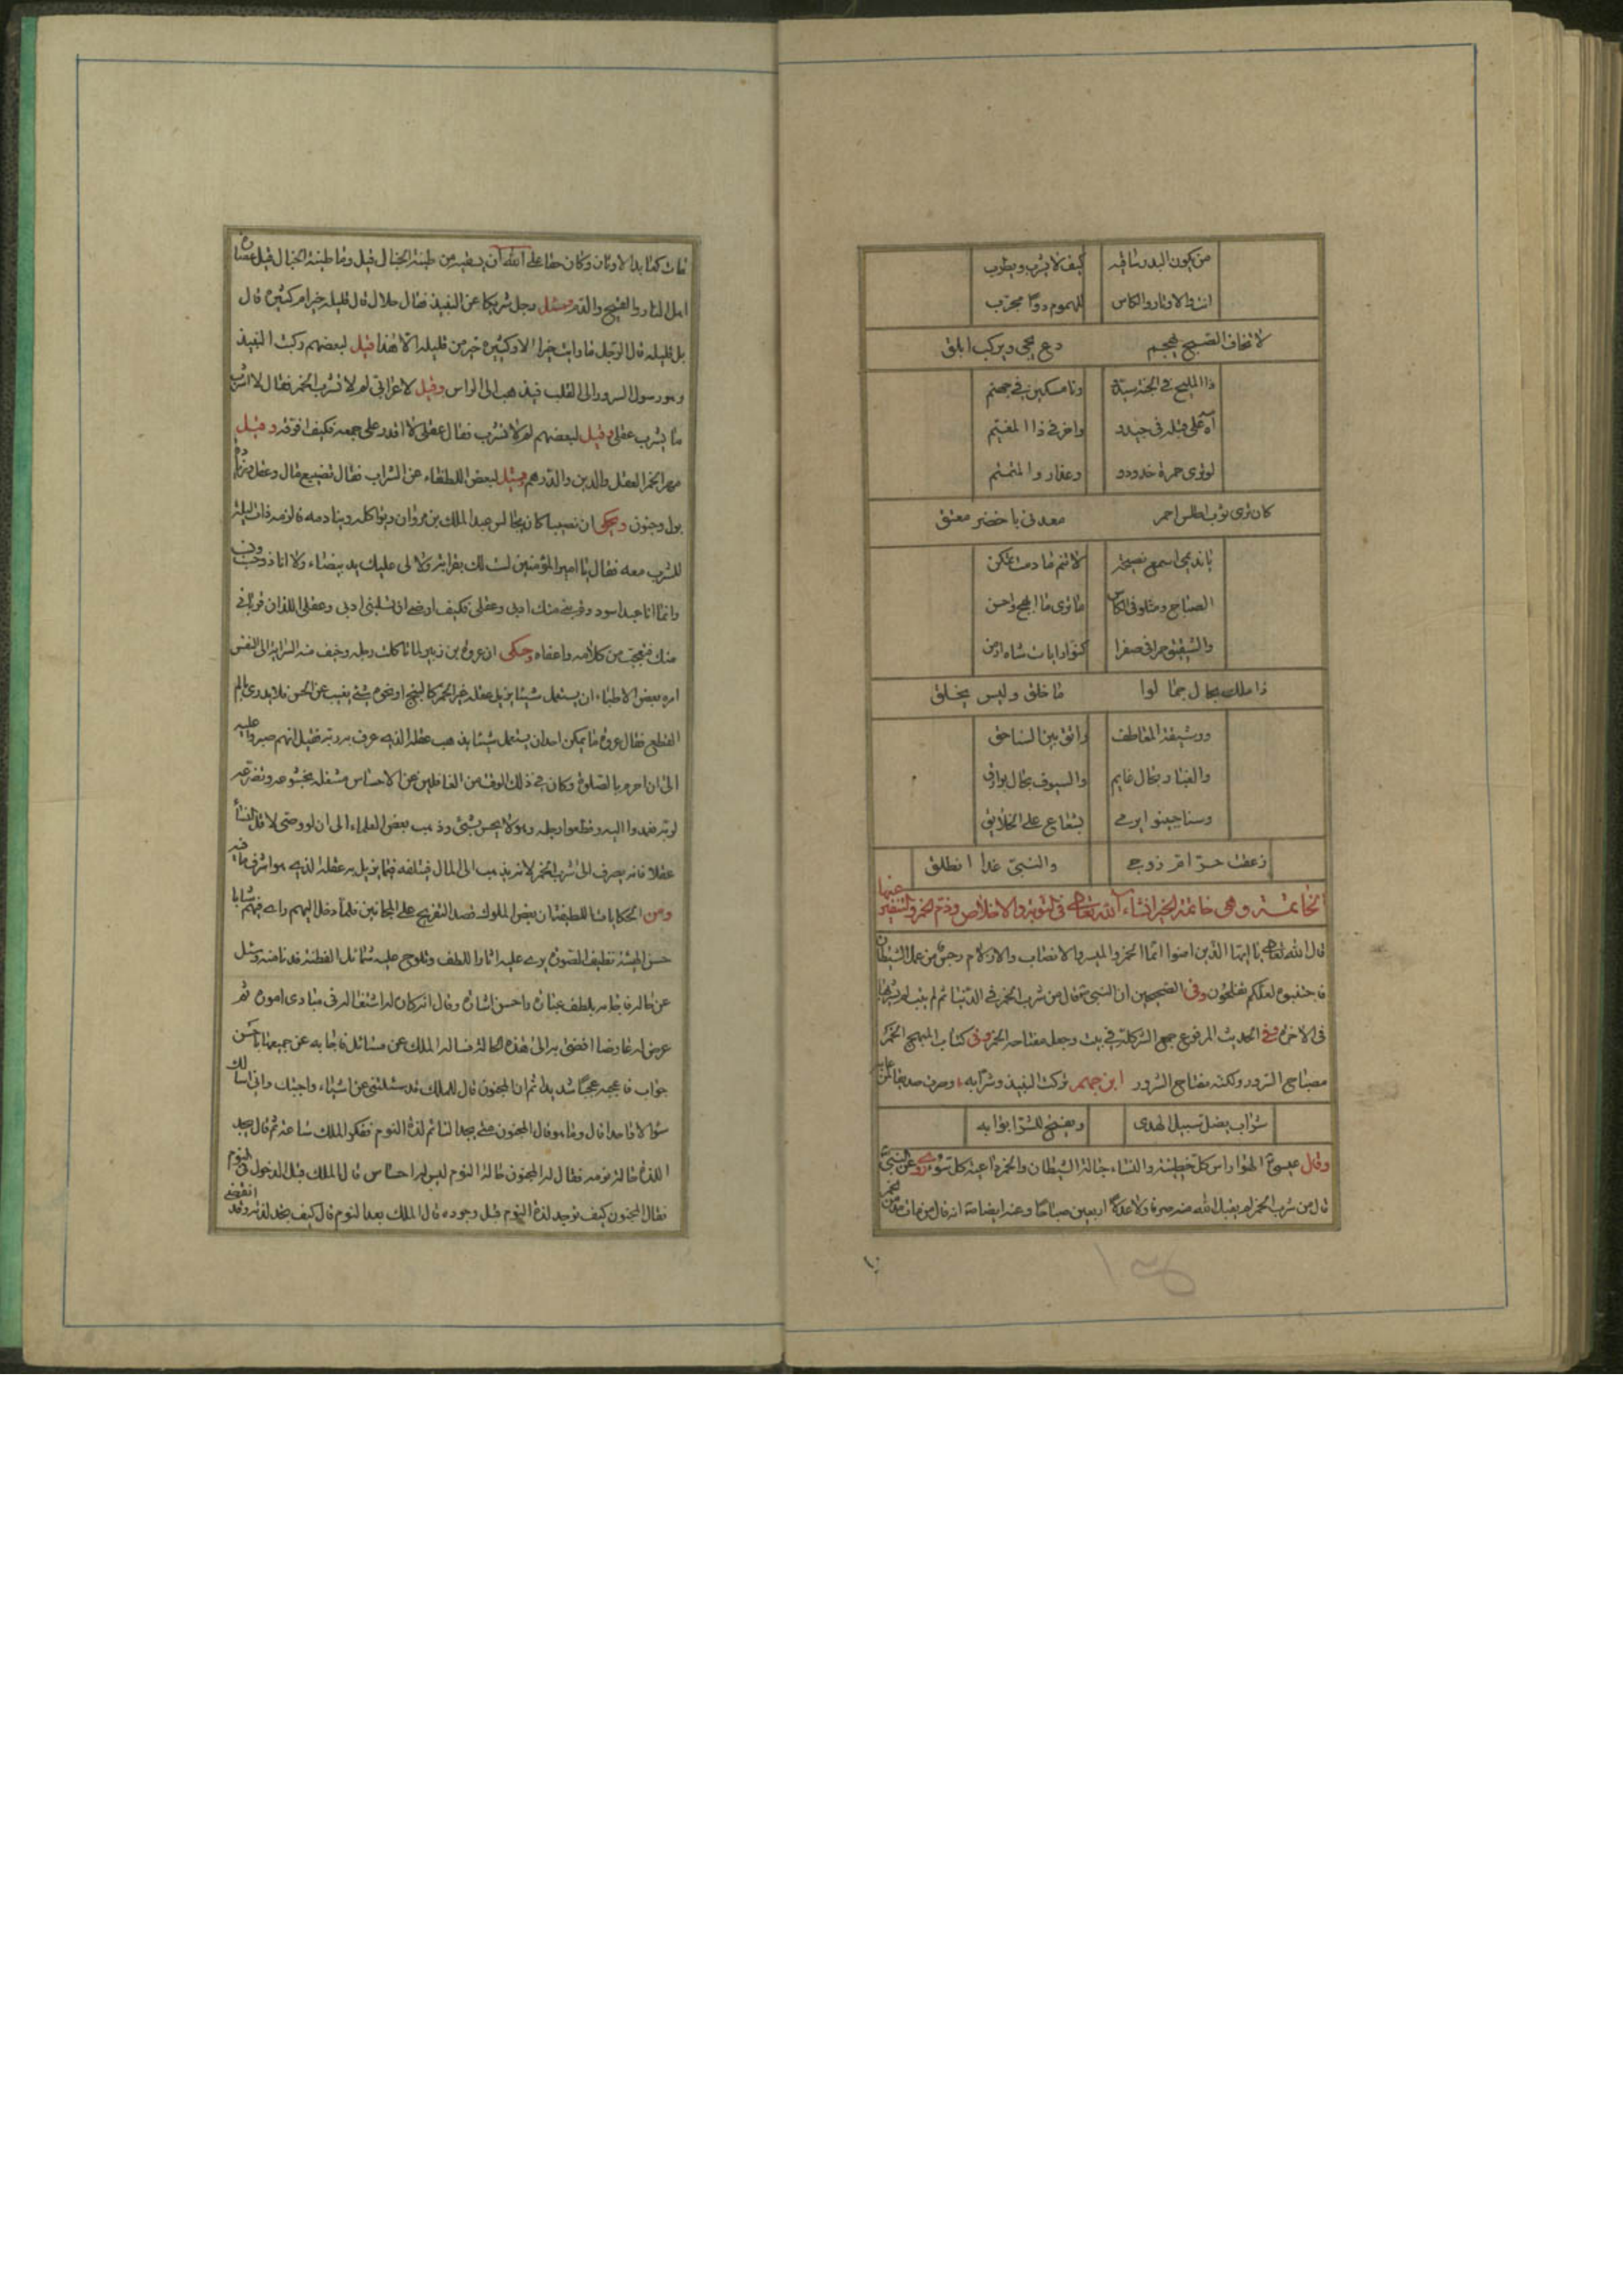 من يكون البدر ساقيه كيف لا يشرب ويطرب
انت والاوتار والكاس للهموم دوا مجرب
لا تخاف الصبح يهجم دع يجي ويركب ابلق
ذا المليح في الجنه سيدي وانا مسكين في جهنم
آه على قبله في جيدو واخر في ذا المغيم
لو ترى حمرة خدودو وعذار والمنمنم
كان ترى ثوب اطلس احمر معدني باخضر معتق
يا نديمي اسمع نصيحه لا تنم ما دمت تمكن
الصباح ومثلو في الكاس ما ترى ما ابهج واحسن
والشقيق حمرا في صفرا كنو رايات شاه ارمن
ذا ملك بحال جمالوا ما خلق وليس يخلق
ورشيقة المعاطف
والعباد بحال غايم والسيوف بحال بوارق
وسنا جبينو ايرمي بشعاع على الخلايق
زعقت حتى اقر زوجي والنبي غدا انطلق
الخاتمة وهي خاتمة الخير انشاء الله تعالى في التوبة والاخلاص وذم الخمر والتنفير عنها
قال الله تعالى يا ايها الذين امنوا انما الخمر والميسر والانصاب والازلام رجس من عمل الشيطان
فاجتنبوه لعلكم تفلحون وفي الصحيحين ان النبي ص قال من شرب الخمر في الدنيا ثم لم يتب لم يشربها
في الاخرة وفي الحديث المرفوع جمع الشر كله في بيت وجعل مفتاحه الخمر وفي كتاب المبهج الخمر
مصباح السرور ولكنه مفتاح الشرور ابن جهم تركت النبيذ وشرابه وصرت صديقا لمن عابه
شراب يضل سبيل الهدى ويفتح للشر ابوابه
وقال عيسى ع الهوا راس كل خطيئة والنساء حبالة الشيطان والخمر داعية كل شر وروي عن النبي ص
قال من شرب الخمر لم يقبل الله منه صرفا ولا عدلا اربعين صباحا وعنه ايضا ص انه قال من مات مدمن خمر
مات كعابد الاوثان وكان حقا على الله ان يسقيه من طينة الخبال قيل وما طينة الخبال قيل عصارة
اهل النار والقيح والدم وسئل رجل شريكا عن النبيذ فقال حلال قال قليله خير ام كثيره قال
بل قليله قال الرجل ما رايت خيرا الا وكثيره خير من قليله الا هذا قيل لبعضهم تركت النبيذ
وهو رسول السرور الى القلب فيذهب الى الراس وقيل لاعرابي لم لا تشرب الخمر فقال لا اشرب
ما يشرب عقلي وقيل لبعضهم لم لا تشرب فقال عقلي لا اقدر على جمعه فكيف افرقه وقيل
مهر الخمر العقل والدين والدرهم وسئل لبعض اللطفاء عن الشراب فقال تضييع مال وعقل
بول وجنون ويحكى ان نصيبا كان يجالس عبد الملك بن مروان ويواكله وينادمه فالزمه ذات ليلة
للشرب معه فقال يا امير المؤمنين لست لك بقرابة ولا لي عليك يد بيضاء ولا انا ذو حسب
وانما انا عبد اسود وقربني منك ادبي وعقلي فكيف ارضى ان تسلبني ادبي وعقلي اللذان قرباني
منك فتعجب من كلامه واعفاه وحكى ان عروة بن زبير لما تاكلت رجله وخيف منه السراية الى النفس
امره بعض الاطباء ان يستعمل شيئا يزيل عقله غير الخمر كالبنج او نحوه شئ يغيب عن الحس فلا يدري بالم
القطع فقال عروة ما يمكن احدا ان يستعمل شيئا يذهب عقله الذي عرف به ربه فقيل انهم صبروا عليه
الى ان احرم بالصلوة وكان في ذلك الوقت من الغافلين عن الاحساس مشغله بخشوعه وتضرعه
لربه فبدوا اليه وقطعوا رجله وهو لا يحس بشئ وذهب بعض العلماء الى ان لو وصى لاقل الناس
عقلا فانه يصرف الى شرب الخمر لانه يذهب الى المال فيتلفه فيما يزيل به عقله الذي هو اشرف ما فيه
ومن الحكايات اللطيفة ان بعض الملوك قصد التفريج على المجانين فلما دخل اليهم راى فيهم شابا
حسن الهيئة نظيف الصورة يرى عليه اثار اللطف وتلوح عليه شمائل الفطنة فدنا منه وسئل
عن حاله فاجابه بلطف عبارة واحسن اشارة وقال انه كان له اشتغال في مبادي اموره ثم
عرض له عارضا افضى به الى هذه الحالة فساله الملك عن مسائل فاجابه عن جميعها باحسن
جواب فاعجبه عجبا شديدا ثم ان المجنون قال للملك قد سئلتني عن اشياء واجبتك واني اسالك
سؤالا واحدا قال وما هو قال المجنون متى يجد النائم لذة النوم ففكر الملك ساعة ثم قال يجد
اللذة حالة نومه فقال له المجنون حالة النوم ليس له احساس قال الملك قبل الدخول في النوم
فقال المجنون كيف توجد لذة النوم قبل وجوده قال الملك بعد النوم قال كيف يجد لذته وقد انقضى